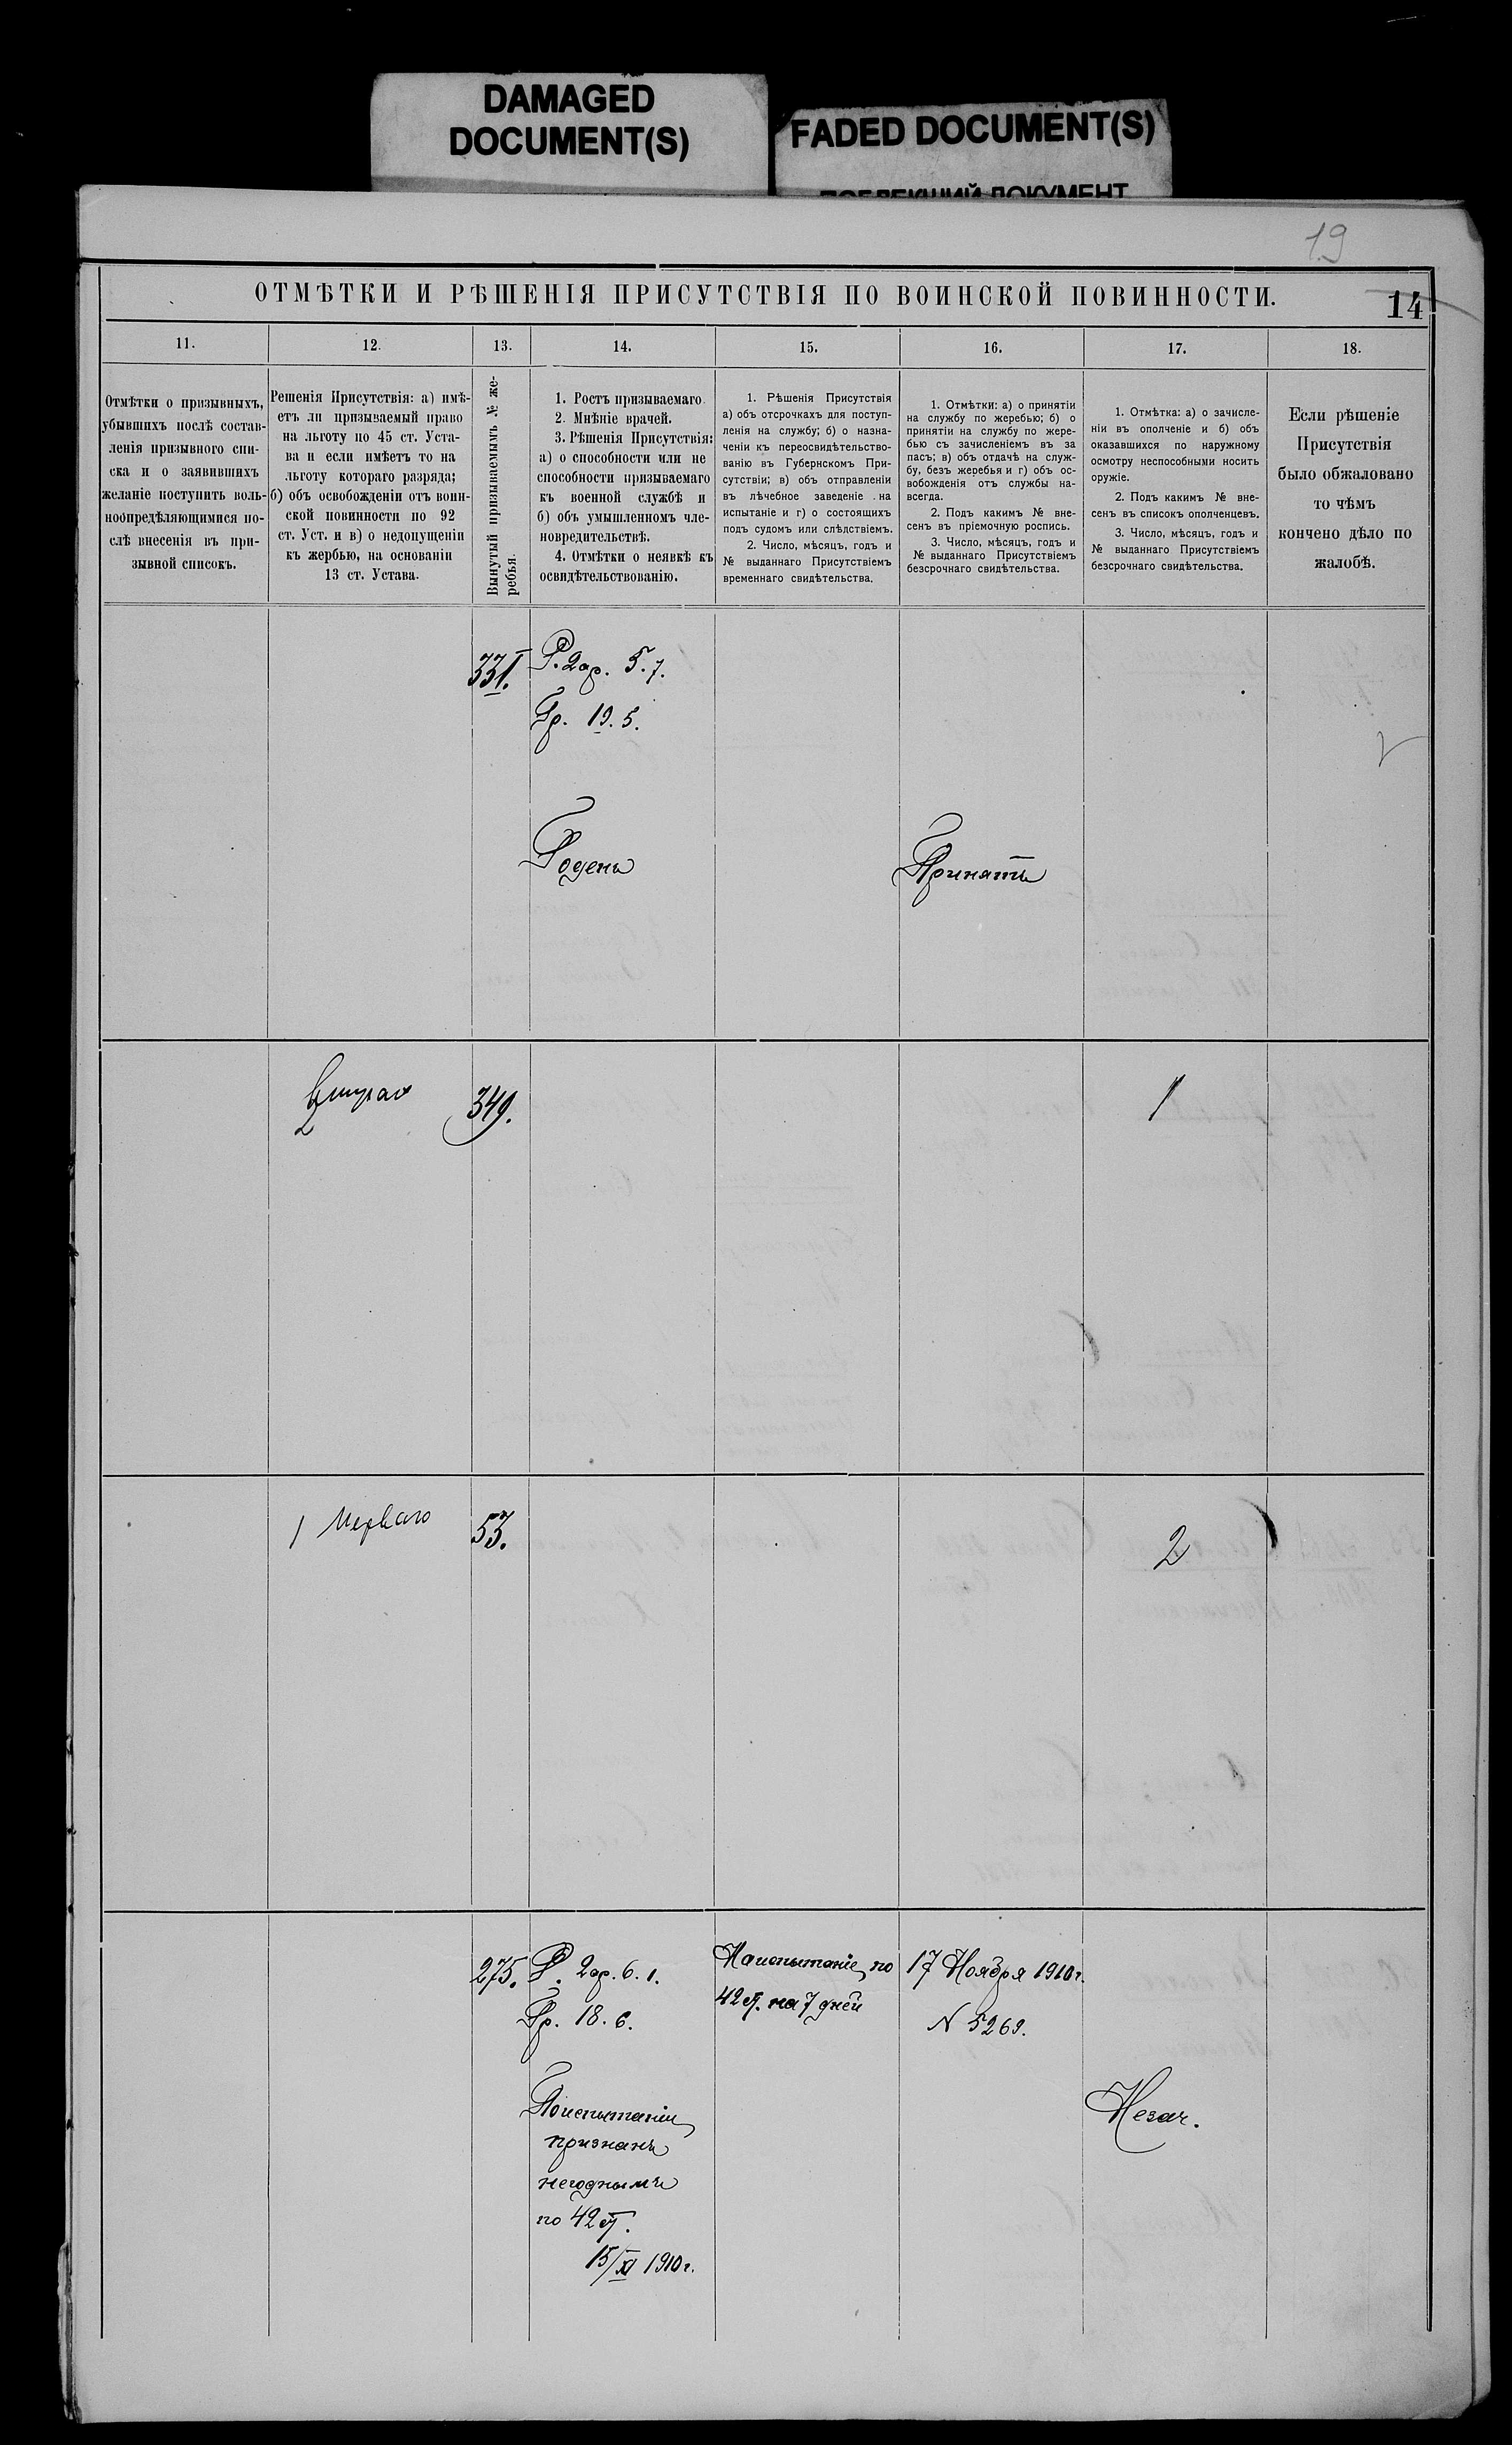 DAMAGED
DOCUMENT(S)
FADED DOCUMENT(S)
ПОБЛЕКШИЙ ДОКУМЕНТ
19
ОТМѢТКИ И РѢШЕНІЯ ПРИСУТСТВІЯ ПО ВОИНСКОЙ ПОВИННОСТИ.
14
11.
12.
13.
14.
15.
16.
17.
18.
Отмѣтки о призывныхъ,
убывшихъ послѣ состав-
ленія призывного спи-
ска и о заявившихъ
желаніе поступить воль-
ноопредѣляющимися по-
слѣ внесенія въ при-
зывной списокъ.
Решенія Присутствія: а) имѣ-
етъ ли призываемый право
на льготу по 45 ст. Уста-
ва и если имѣетъ то на
льготу котораго разряда;
б) объ освобожденіи отъ воин-
ской повинности по 92
ст. Уст. и в) о недопущеніи
къ жербью, на основаніи
13 ст. Устава.
Вынутый призываемымъ № же-
ребья.
1. Ростъ призываемаго.
2. Мнѣніе врачей.
3. Рѣшенія Присутствія:
а) о способности или не
способности призываемаго
къ военной службѣ и
б) объ умышленномъ чле-
новредительствѣ.
4. Отмѣтки о неявкѣ къ
освидѣтельствованію.
1. Рѣшенія Присутствія
а) объ отсрочкахъ для поступ-
ленія на службу; б) о назна-
ченіи къ переосвидѣтельство-
ванію въ Губернскомъ При-
сутствіи; в) объ отправленіи
въ лѣчебное заведеніе на
испытаніе и г) о состоящихъ
подъ судомъ или слѣдствіемъ.
2. Число, мѣсяцъ, годъ и
№ выданнаго Присутствіемъ
временнаго свидѣтельства.
1. Отмѣтки: а) о принятіи
на службу по жеребью; б) о
принятіи на службу по жере-
бью съ зачисленіемъ въ за
пасъ; в) объ отдачѣ на служ-
бу, безъ жеребья и г) объ ос-
вобожденія отъ службы на-
всегда.
2. Подъ какимъ № вне-
сенъ въ пріемочную роспись.
3. Число, мѣсяцъ, годъ и
№ выданнаго Присутствіемъ
безсрочнаго свидѣтельства.
1. Отмѣтка: а) о зачисле-
ніи въ ополченіе и б) объ
оказавшихся по наружному
осмотру неспособными носить
оружіе.
2. Подъ какимъ № вне-
сенъ въ списокъ ополченцевъ.
3. Число, мѣсяцъ, годъ и
№ выданнаго Присутствіемъ
безсрочнаго свидѣтельства.
Если рѣшеніе
Присутствія
было обжаловано
то чѣмъ
кончено дѣло по
жалобѣ.
331.
Р. 2ар. 5. 7.
Гр. 19. 5.
Годенъ
Принятъ
349.
1
1 Перваго
53.
2
275.
Р. 2ар. 6. 1.
Гр. 18. 6.
На испытаніе по
42 ст. на 7 дней
17 Ноября 1910 г.
N 5269.
По испытаніи
признанъ
негоднымъ
по 42 ст.
15/XI 1910 г.
Незач.